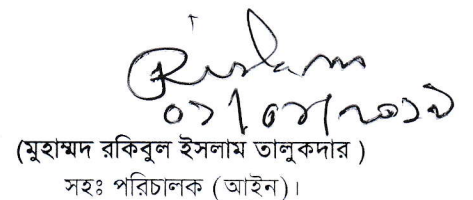 Rislam
০১/০৮/২০১৯
(মুহাম্মদ রকিবুল ইসলাম তালুকদার )
সহঃ পরিচালক (আইন)।